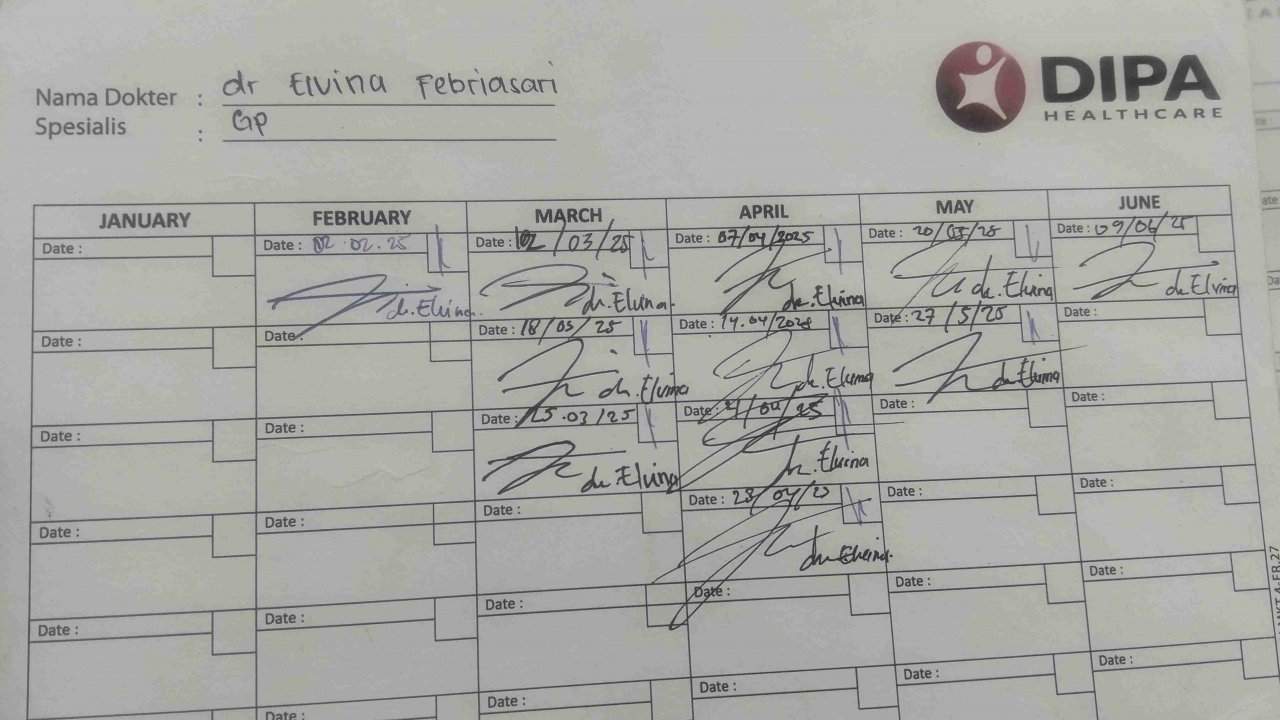 Nama Dokter : dr Elvina Febriasari
Spesialis : GP
DIPA
HEALTHCARE
JANUARY FEBRUARY MARCH APRIL MAY JUNE
Date : Date : 02.02.25 Date : 02/03/25 Date : 07/04/2025 Date : 20/05/25 Date : 09/06/25
dr. Elvina dr. Elvina dr. Elvina dr. Elvina dr. Elvina
Date : Date : Date : 18/03/25 Date : 14.04/2025 Date : 27/5/25 Date :
dr. Elvina dr. Elvina dr. Elvina
Date : Date : Date : 25.03/25 Date : /04/25 Date : Date :
dr. Elvina dr. Elvina
Date : Date : Date : Date : 28/04/25 Date : Date :
dr. Elvina
Date : Date : Date : Date : Date : Date :
Date : Date : Date : Date : Date :